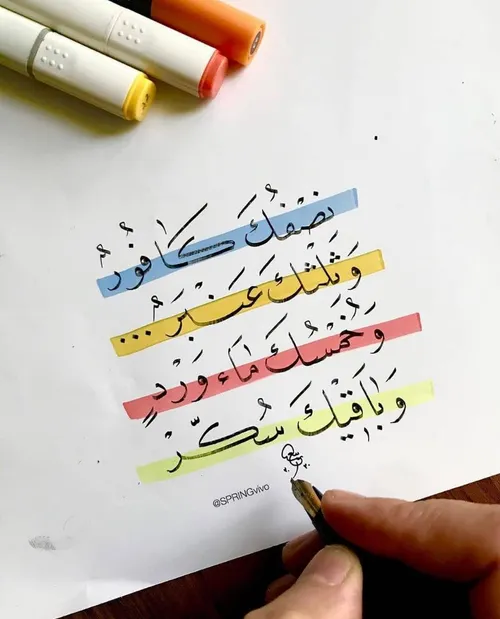 نصْفُكَ كَافُورُ
وَثُلثك عَنْبَرُ...
وَخُمْسُكَ مَاء وَرْدٍ
وَبَاقِيْكَ سُكّرْ
@SPRINGvivo